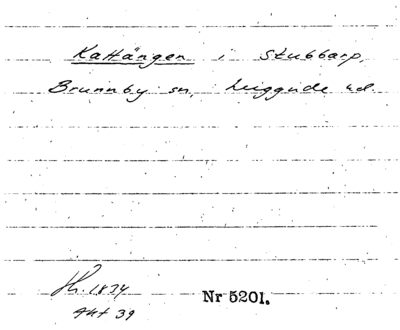 Kattängen i Stubbarp,
Brunnby sn, Luggude hd.
1834
Akt 39
Nr 5201.